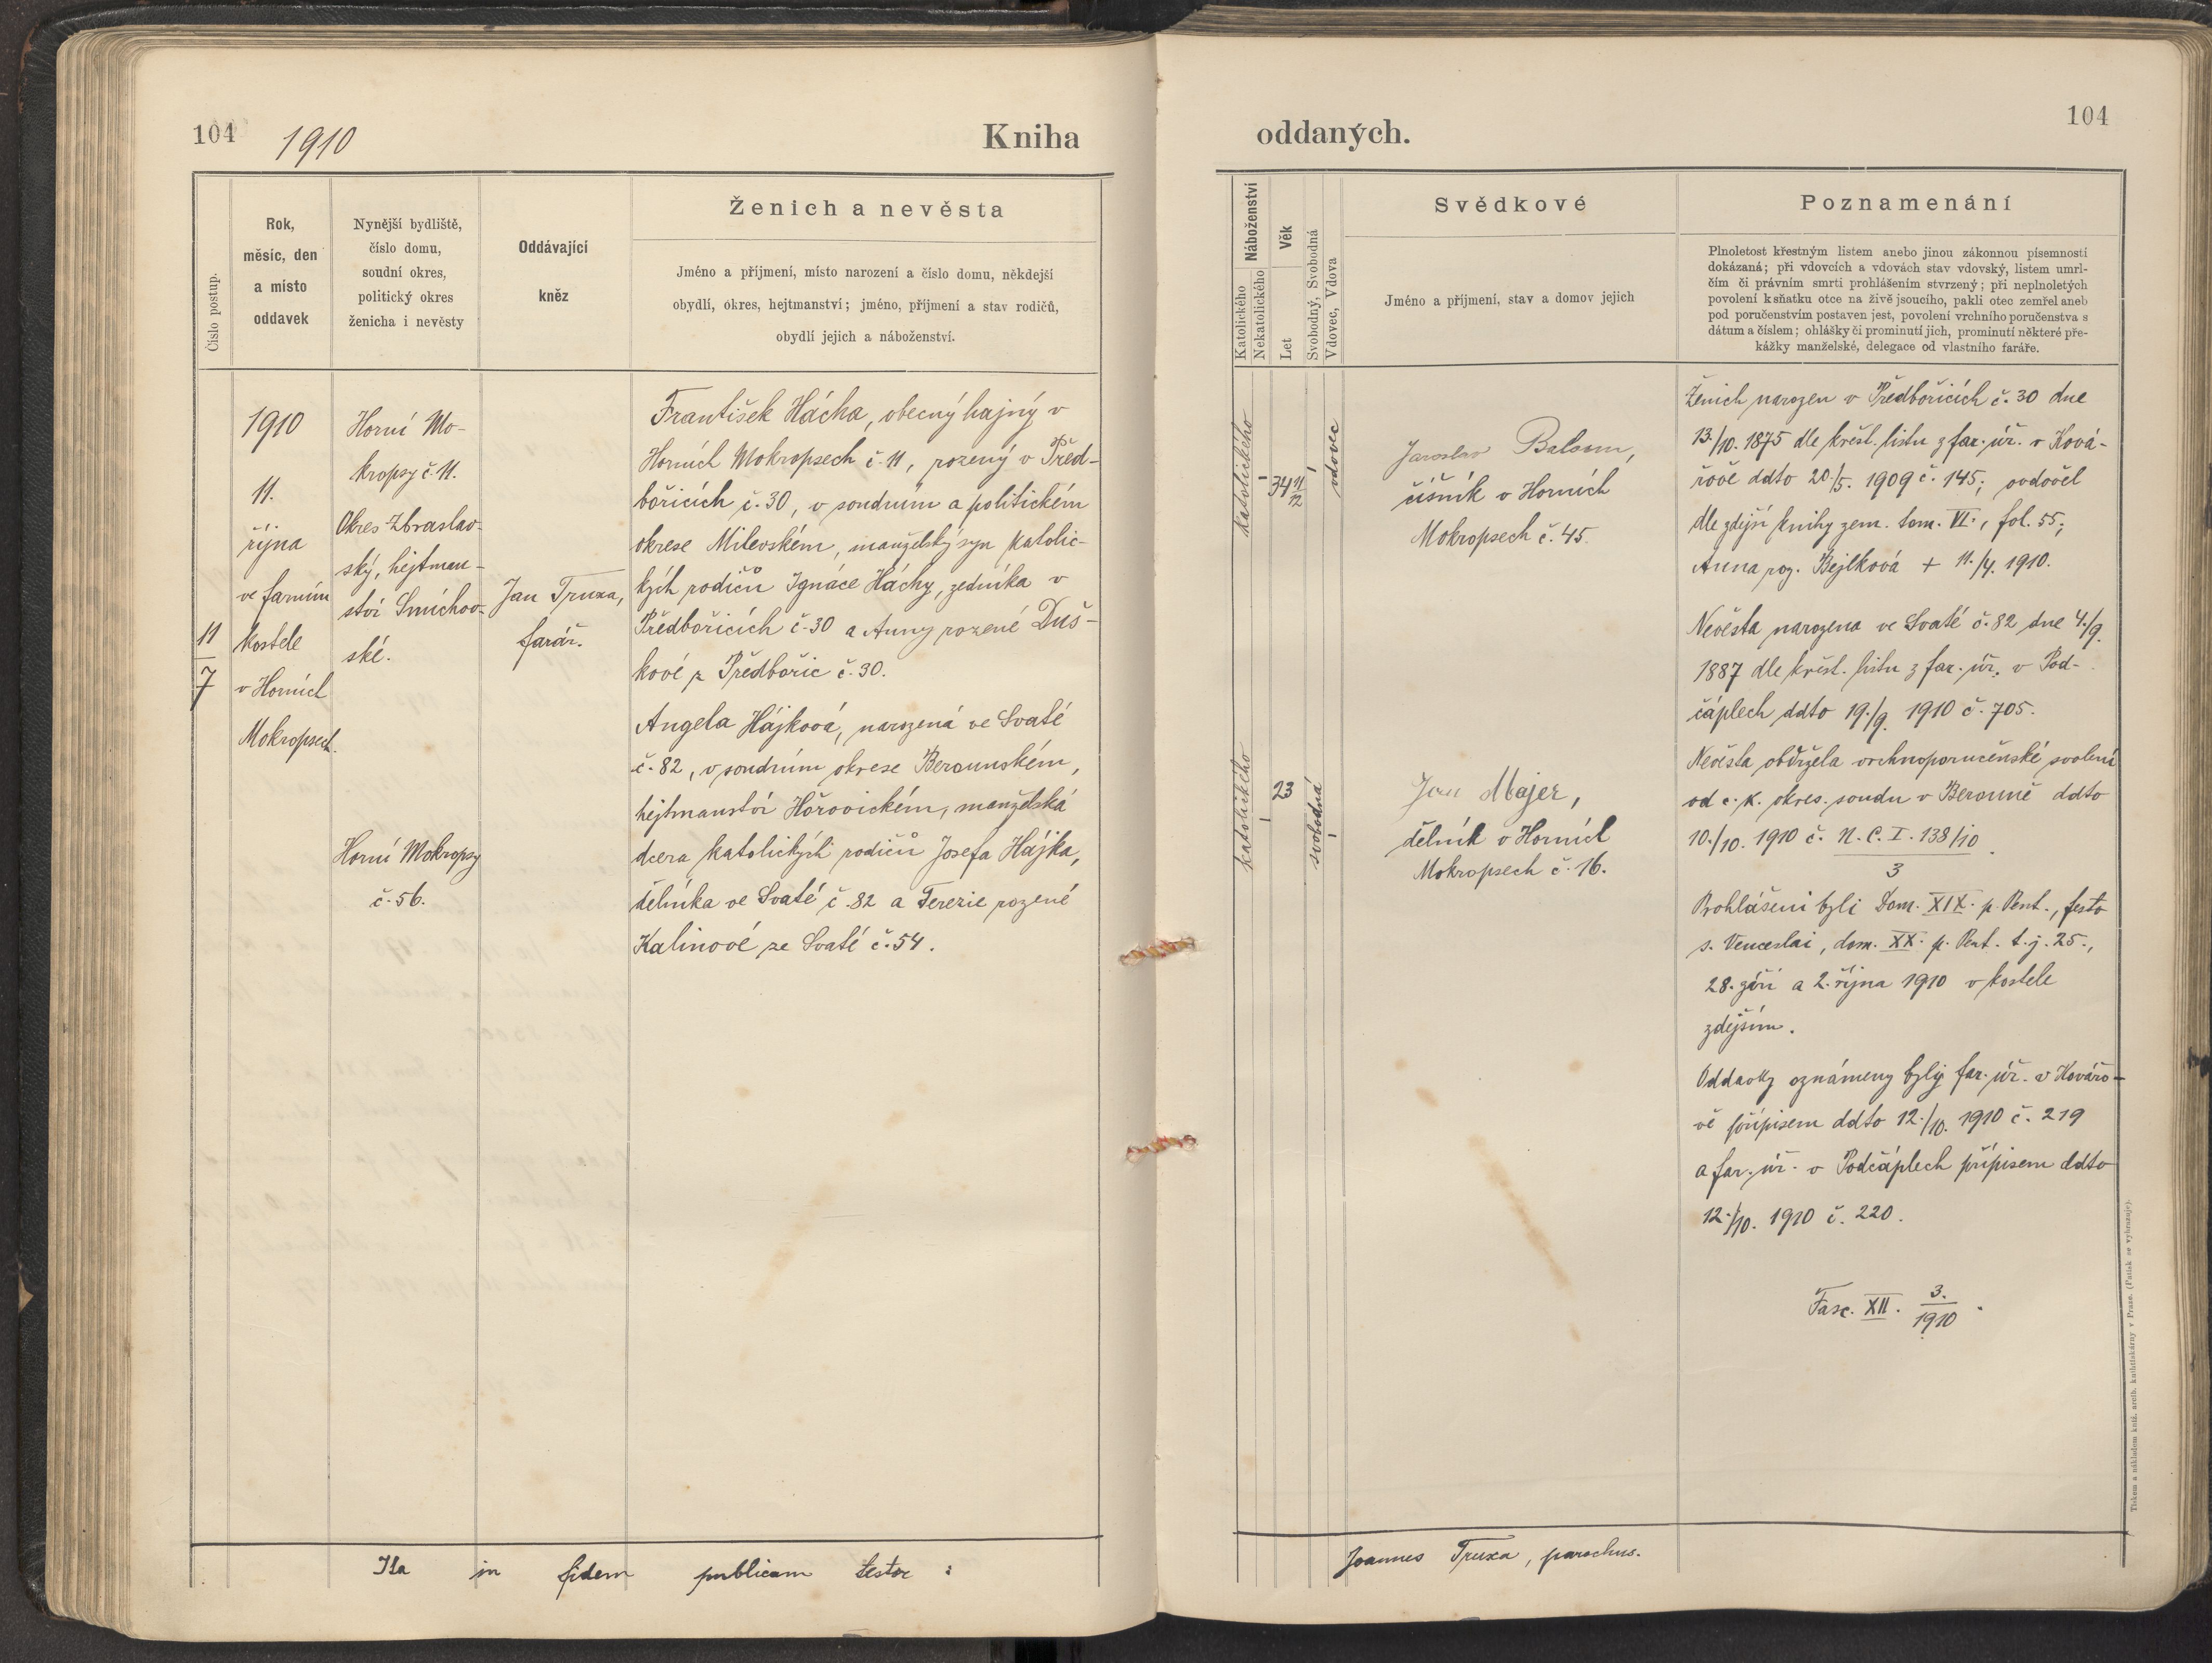 104
1910
Kniha
oddaných.
104
Číslo postup.
Rok,
měsíc, den
a místo
oddavek
Nynější bydliště,
číslo domu,
soudní okres,
politický okres
ženicha i nevěsty
Oddávající
kněz
Ženich a nevěsta
Jméno a příjmení, místo narození a číslo domu, někdejší
obydlí, okres, hejtmanství; jméno, příjmení a stav rodičů,
obydlí jejich a náboženství.
Náboženství
Katolického
Nekatolického
Věk
Let
Svobodný, Svobodná
Vdovec, Vdova
Svědkové
Jméno a příjmení, stav a domov jejich
Poznamenání
Plnoletost křestným listem anebo jinou zákonnou písemností
dokázaná; při vdovcích a vdovách stav vdovský, listem umrl-
čím či právním smrti prohlášením stvrzený; při neplnoletých
povolení k sňatku otce na živě jsoucího, pakli otec zemřel aneb
pod poručenstvím postaven jest, povolení vrchního poručenstva s
dátum a číslem; ohlášky či prominutí jich, prominutí některé pře-
kážky manželské, delegace od vlastního faráře.
11
7
1910
11.
října
ve farním
kostele
v Horních
Mokropsech.
Horní Mo-
kropsy č. 11.
Okres Zbraslav-
ský, hejtman-
ství Smíchov-
ské.
Horní Mokropsy
č. 56.
Jan Truxa,
farář.
František Hácha, obecný hajný v
Horních Mokropsech č. 11, rozený v Před-
bořicích č. 30, v soudním a politickém
okrese Milevském, manželský syn katolic-
kých rodičů Ignáce Háchy, zedníka v
Předbořicích č. 30 a Anny rozené Duš-
kové z Předbořic č. 30.
Angela Hájková, narozená ve Svaté
č. 82, v soudním okrese Berounském,
hejtmanství Hořovickém, manželská
dcera katolických rodičů Josefa Hájka,
dělníka ve Svaté č. 82 a Terezie rozené
Kalinové ze Svaté č. 54.
katolického
34 11/12
vdovec
Jaroslav
číšník v Horních
Mokropsech č. 45.
katolického
23
svobodná
Jan Majer,
dělník v Horních
Mokropsech č. 16.
Ženich narozen v Předbořicích č. 30 dne
13./10. 1875 dle křest. listu z far. úř. v Ková-
řově ddto 20./5. 1909 č. 145; ovdověl
dle zdejší knihy zem. tom. VI., fol. 55;
Anna roz. Bejlková + 11./4. 1910.
Nevěsta narozena ve Svaté č. 82 dne 4./9.
1887 dle křest. listu z far. úř. v Pod-
čáplech ddto 19./9. 1910 č. 705.
Nevěsta obdržela vrchnoporučenské svolení
od c. k. okres. soudu v Berouně ddto
10./10. 1910 č. N. C. I. 138/10
3
Prohlášeni byli Dom. XIX. p. Pent., festo
s. Venceslai, dom. XX. p. Pent. t. j. 25.,
28. září a 2. října 1910 v kostele
zdejším.
Oddavky oznámeny byly far. úř. v Kovářo-
vě přípisem ddto 12./10. 1910 č. 219
a far. úř. v Podčáplech přípisem ddto
12./10. 1910 č. 220.
Fasc. XII. 3./1910.
Ita in fidem publicam testor:
Joannes Truxa, parochus.
Tiskem a nákladem kníž. arcib. knihtiskárny v Praze. (Patisk se vyhrazuje).